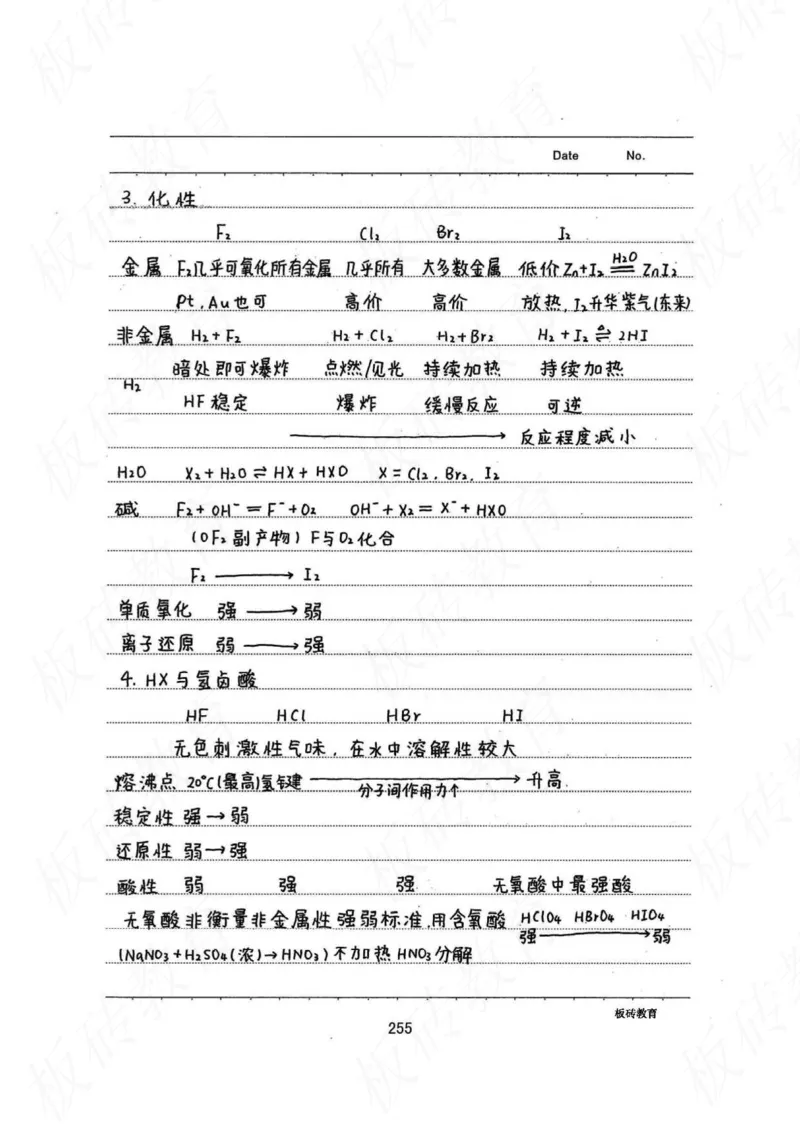 Date No.
3. 化性
F₂ Cl₂ Br₂ I₂
金属 F₂几乎可氧化所有金属 几乎所有 大多数金属 低价 Zn+I₂ H₂O ═ ZnI₂
Pt,Au也可 高价 高价 放热,I₂升华紫气(东来)
非金属 H₂+F₂ H₂+Cl₂ H₂+Br₂ H₂+I₂ △ ⇌ 2HI
暗处即可爆炸 点燃/见光 持续加热 持续加热
H₂
HF稳定 爆炸 缓慢反应 可逆
→ 反应程度减小
H₂O X₂+H₂O⇌HX+HXO X=Cl₂,Br₂,I₂
碱 F₂+OH⁻=F⁻+O₂ OH⁻+X₂=X⁻+HXO
(OF₂副产物)F与O₂化合
F₂ → I₂
单质氧化 强 → 弱
离子还原 弱 → 强
4. HX与氢卤酸
HF HCl HBr HI
无色刺激性气味,在水中溶解性较大
熔沸点 20℃(最高)氢键 → 升高
分子间作用力↑
稳定性 强→弱
还原性 弱→强
酸性 弱 强 强 无氧酸中最强酸
无氧酸非衡量非金属性强弱标准,用含氧酸 HClO₄ HBrO₄ HIO₄
强 → 弱
(NaNO₃+H₂SO₄(浓)→HNO₃)不加热 HNO₃分解
板砖教育
255